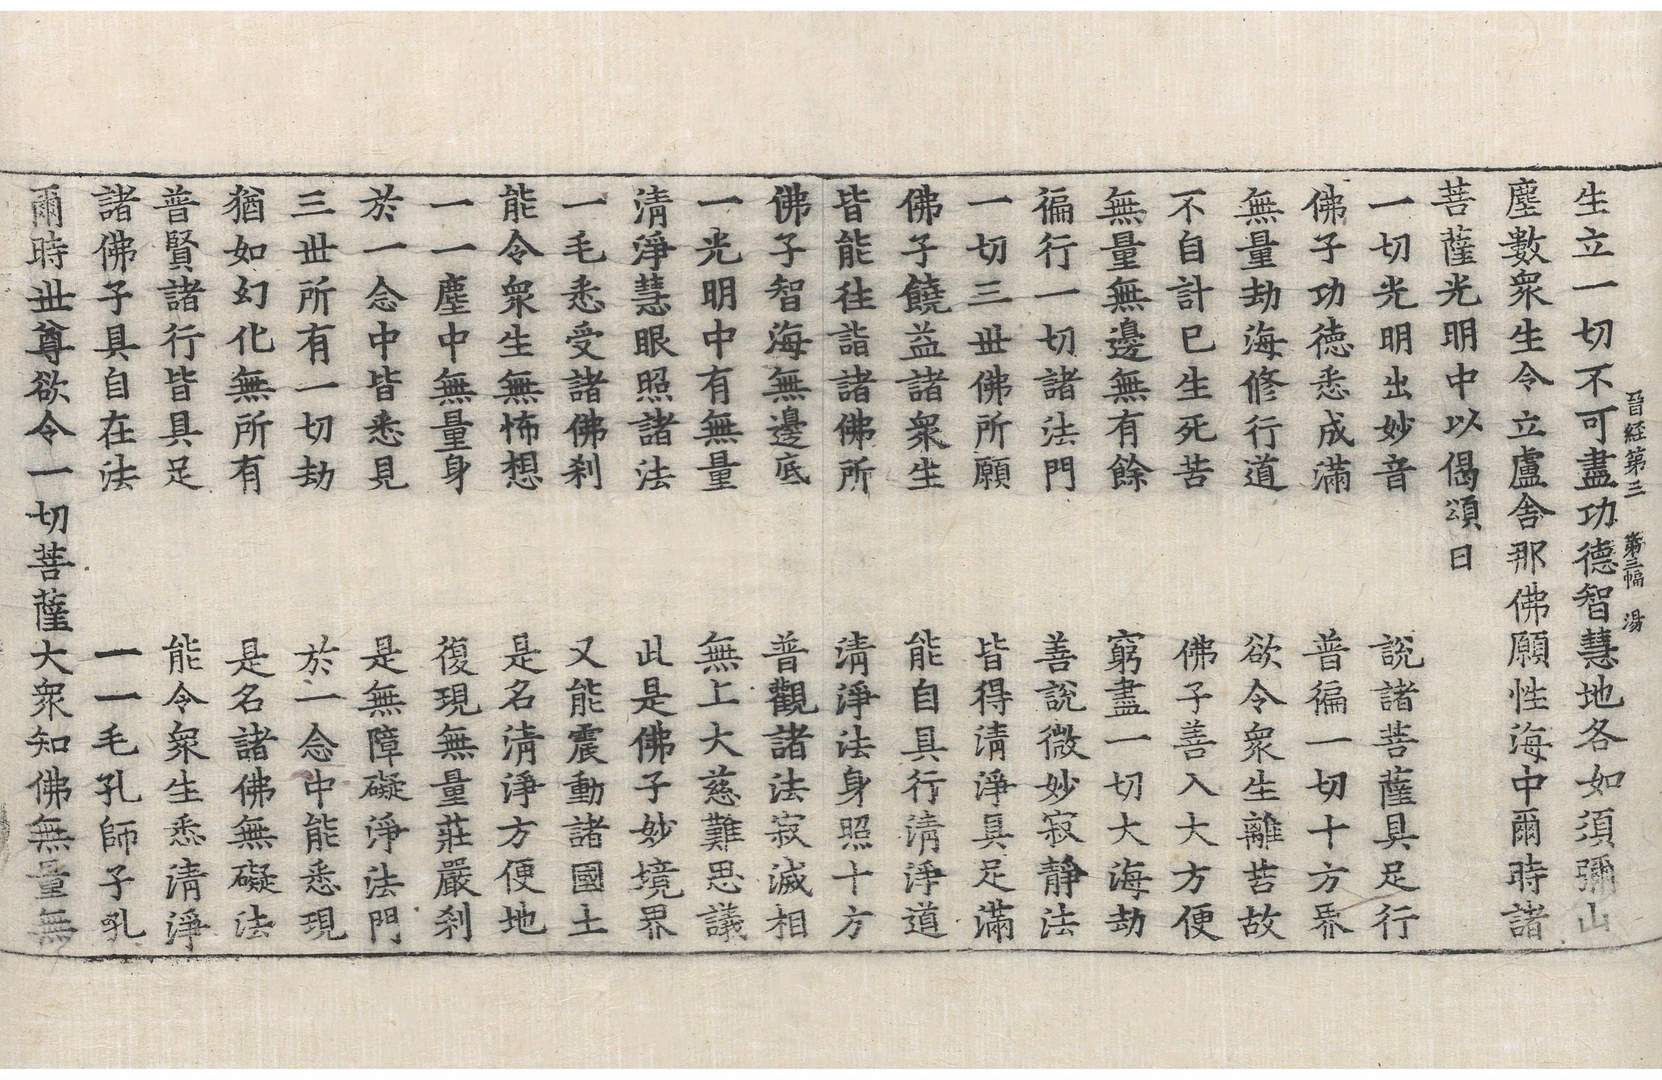 晉經第三　第三幅　湯
生立一切不可盡功德智慧地各如須彌山
塵數衆生令立盧舍那佛願性海中爾時諸
菩薩光明中以偈頌曰
一切光明出妙音　說諸菩薩具足行
佛子功德悉成滿　普徧一切十方界
無量劫海修行道　欲令衆生離苦故
不自計已生死苦　佛子善入大方便
無量無邊無有餘　窮盡一切大海劫
徧行一切諸法門　善說微妙寂靜法
一切三世佛所願　皆得清淨具足滿
佛子饒益諸衆生　能自具行清淨道
皆能往詣諸佛所　清淨法身照十方
佛子智海無邊底　普觀諸法寂滅相
一光明中有無量　無上大慈難思議
清淨慧眼照諸法　此是佛子妙境界
一毛悉受諸佛刹　又能震動諸國土
能令衆生無怖想　是名清淨方便地
一一塵中無量身　復現無量莊嚴刹
於一念中皆悉見　是無障礙淨法門
三世所有一切劫　於一念中能悉現
猶如幻化無所有　是名諸佛無礙法
普賢諸行皆具足　能令衆生悉清淨
諸佛子具自在法　一一毛孔師子吼
爾時世尊欲令一切菩薩大衆知佛無量無